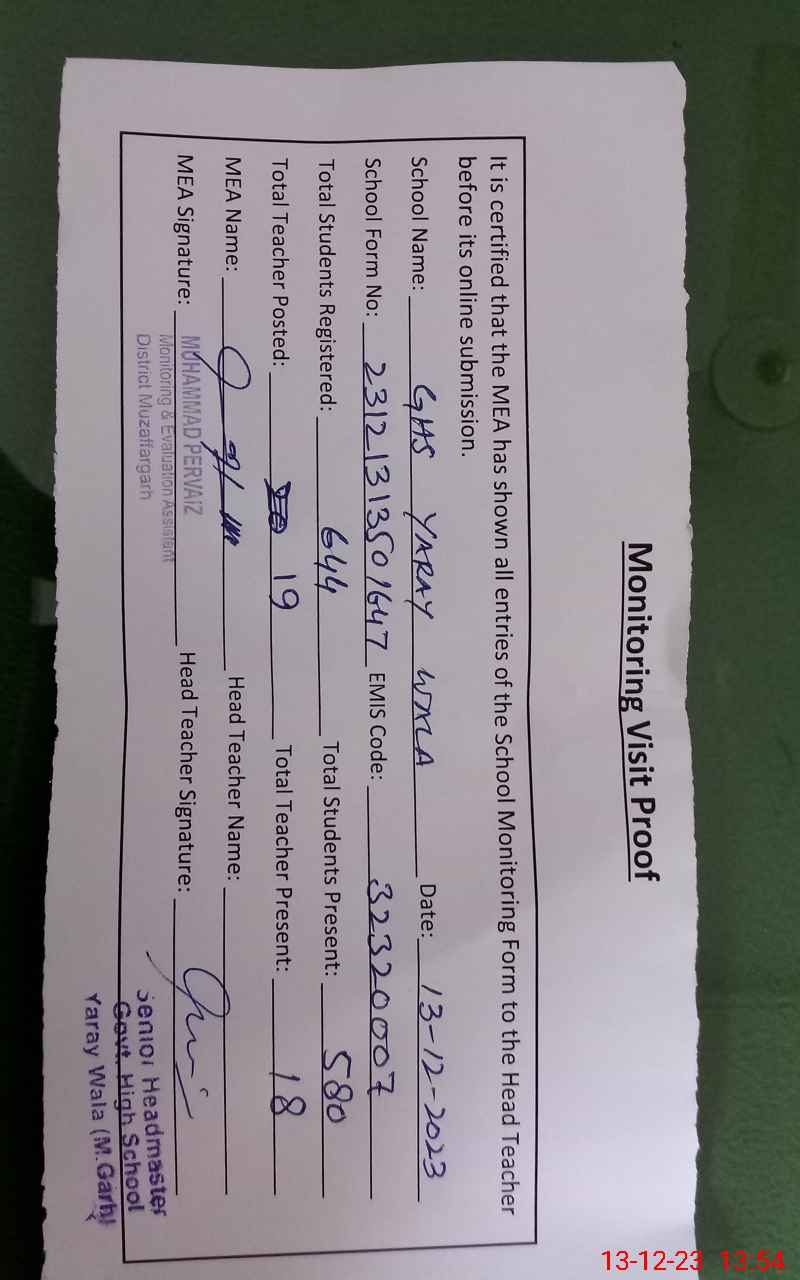 Monitoring Visit Proof
It is certified that the MEA has shown all entries of the School Monitoring Form to the Head Teacher
before its online submission.
School Name: GHS YARAY WALA Date: 13-12-2023
School Form No: 23121313501647 EMIS Code: 32320007
Total Students Registered: 644 Total Students Present: 580
Total Teacher Posted: 19 Total Teacher Present: 18
MEA Name: Head Teacher Name:
MEA Signature: Head Teacher Signature:
MUHAMMAD PERVAIZ
Monitoring & Evaluation Assistant
District Muzaffargarh
Senior Headmaster
Govt. High School
Yaray Wala (M.Garh)
13-12-23 13:54